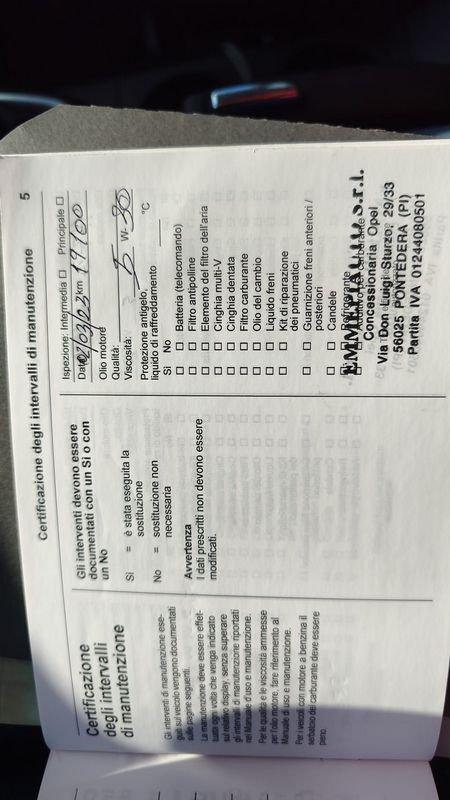 Certificazione degli intervalli di manutenzione
5
Certificazione
degli intervalli
di manutenzione
Gli interventi di manutenzione ese-
guiti sul veicolo vengono documentati
sulle pagine seguenti.
La manutenzione deve essere effet-
tuata ogni volta che venga indicato
sul relativo display, senza superare
gli intervalli di manutenzione riportati
nel Manuale d'uso e manutenzione.
Per le qualità e le viscosità ammesse
per l'olio motore, fare riferimento al
Manuale di uso e manutenzione.
Per i veicoli con motore a benzina il
serbatoio del carburante deve essere
pieno.
Gli interventi devono essere
documentati con un Sì o con
un No
Sì = è stata eseguita la
sostituzione
No = sostituzione non
necessaria
Avvertenza
I dati prescritti non devono essere
modificati.
Ispezione: Intermedia □ Principale □
Data 02/03/23 km 19100
Olio motore
Qualità:
Viscosità: 5 W- 30
Protezione antigelo,
liquido di raffreddamento °C
Sì No
□ □ Batteria (telecomando)
□ □ Filtro antipolline
□ □ Elemento del filtro dell'aria
□ □ Cinghia multi-V
□ □ Cinghia dentata
□ □ Filtro carburante
□ □ Olio del cambio
□ □ Liquido freni
□ □ Kit di riparazione
dei pneumatici
□ □ Guarnizione freni anteriori /
posteriori
□ □ Candele
s.r.l.
Concessionaria Opel
Via Don Luigi Sturzo, 29/33
56025 PONTEDERA (PI)
Partita IVA 01244080501